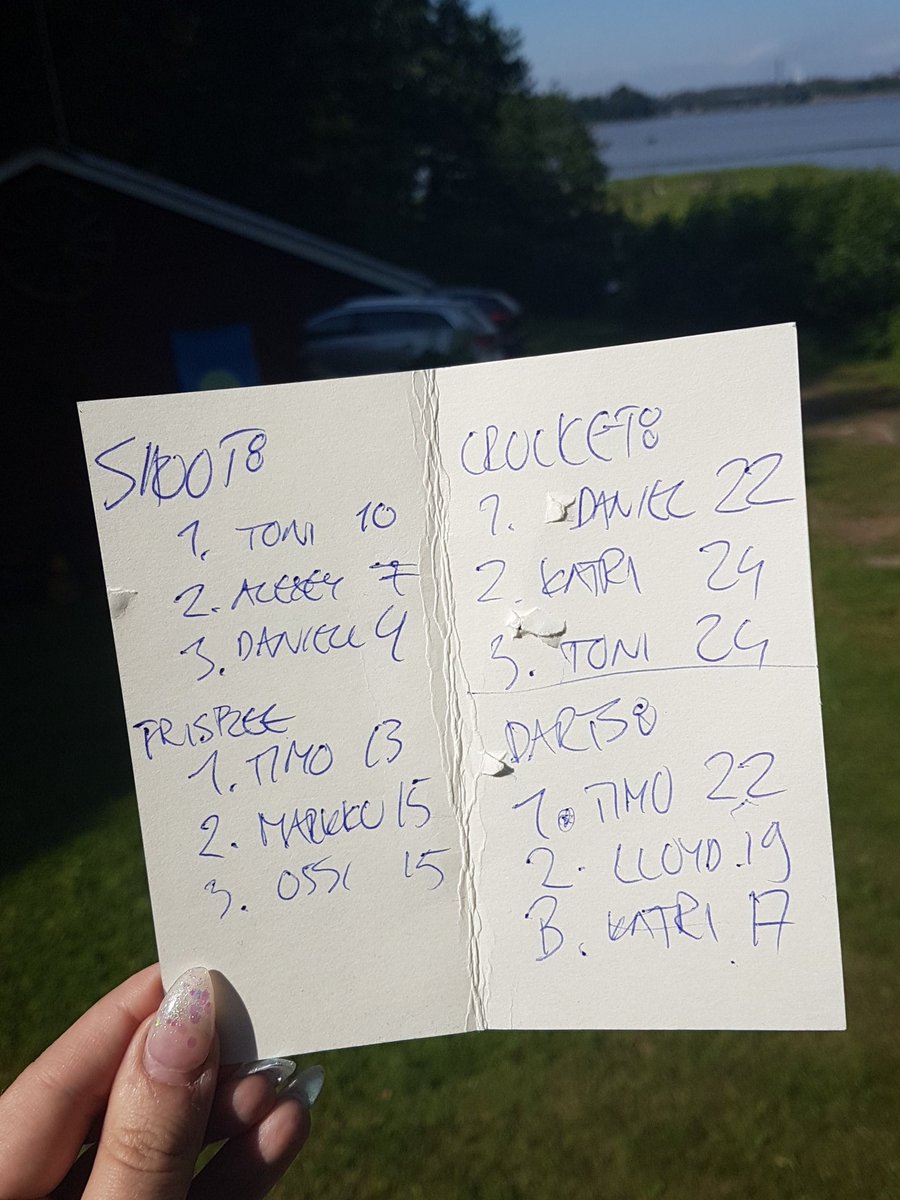 SHOOT:
1. TONI 10
2. ALEKSEY 7
3. DANIEL 4
FRISPEE
1. TIMO 13
2. MARKKU 15
3. OSSI 15
CROCKET:
1. DANIEL 22
2. KATRI 24
3. TONI 24
DARTS:
1. TIMO 22
2. LLOYD 19
3. KATRI 17